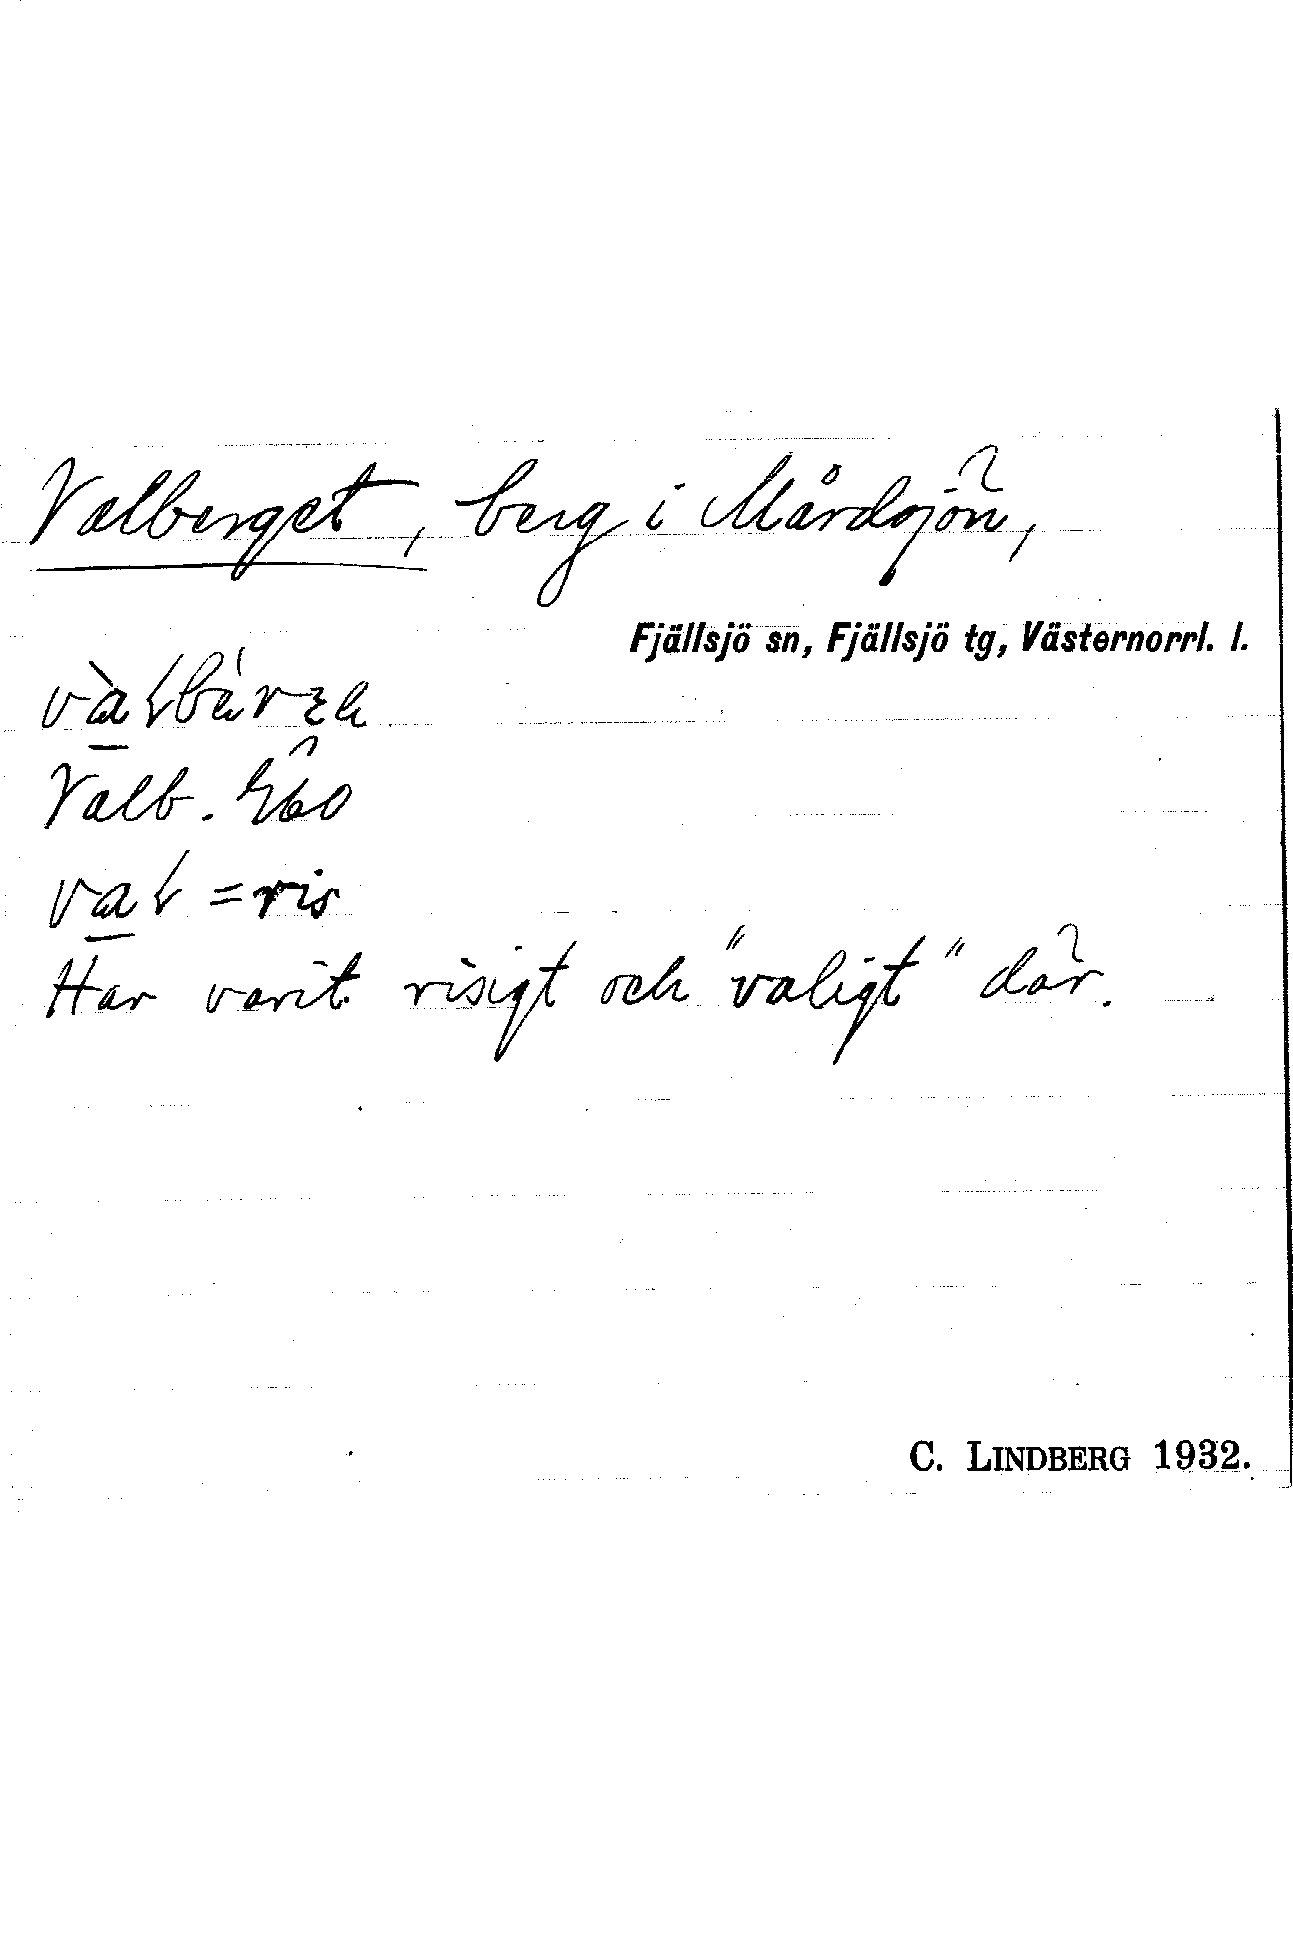 Valberget, berg i Mårdsjön,
Fjällsjö sn, Fjällsjö tg, Västernorrl. l.
Valb.
= ris
Har varit risigt och "valigt" där.
C. LINDBERG 1932.